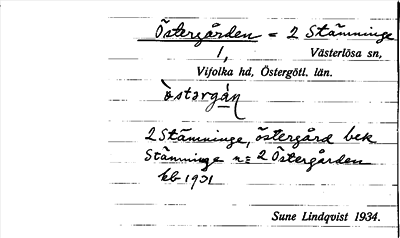 Östergården = 2 Stämninge
1, Västerlösa sn,
Vifolka hd, Östergötl. län.
östərgán
2 Stämninge, östergård bek
Stänninge n: 2 Östergården
kb 1931
Sune Lindqvist 1934.